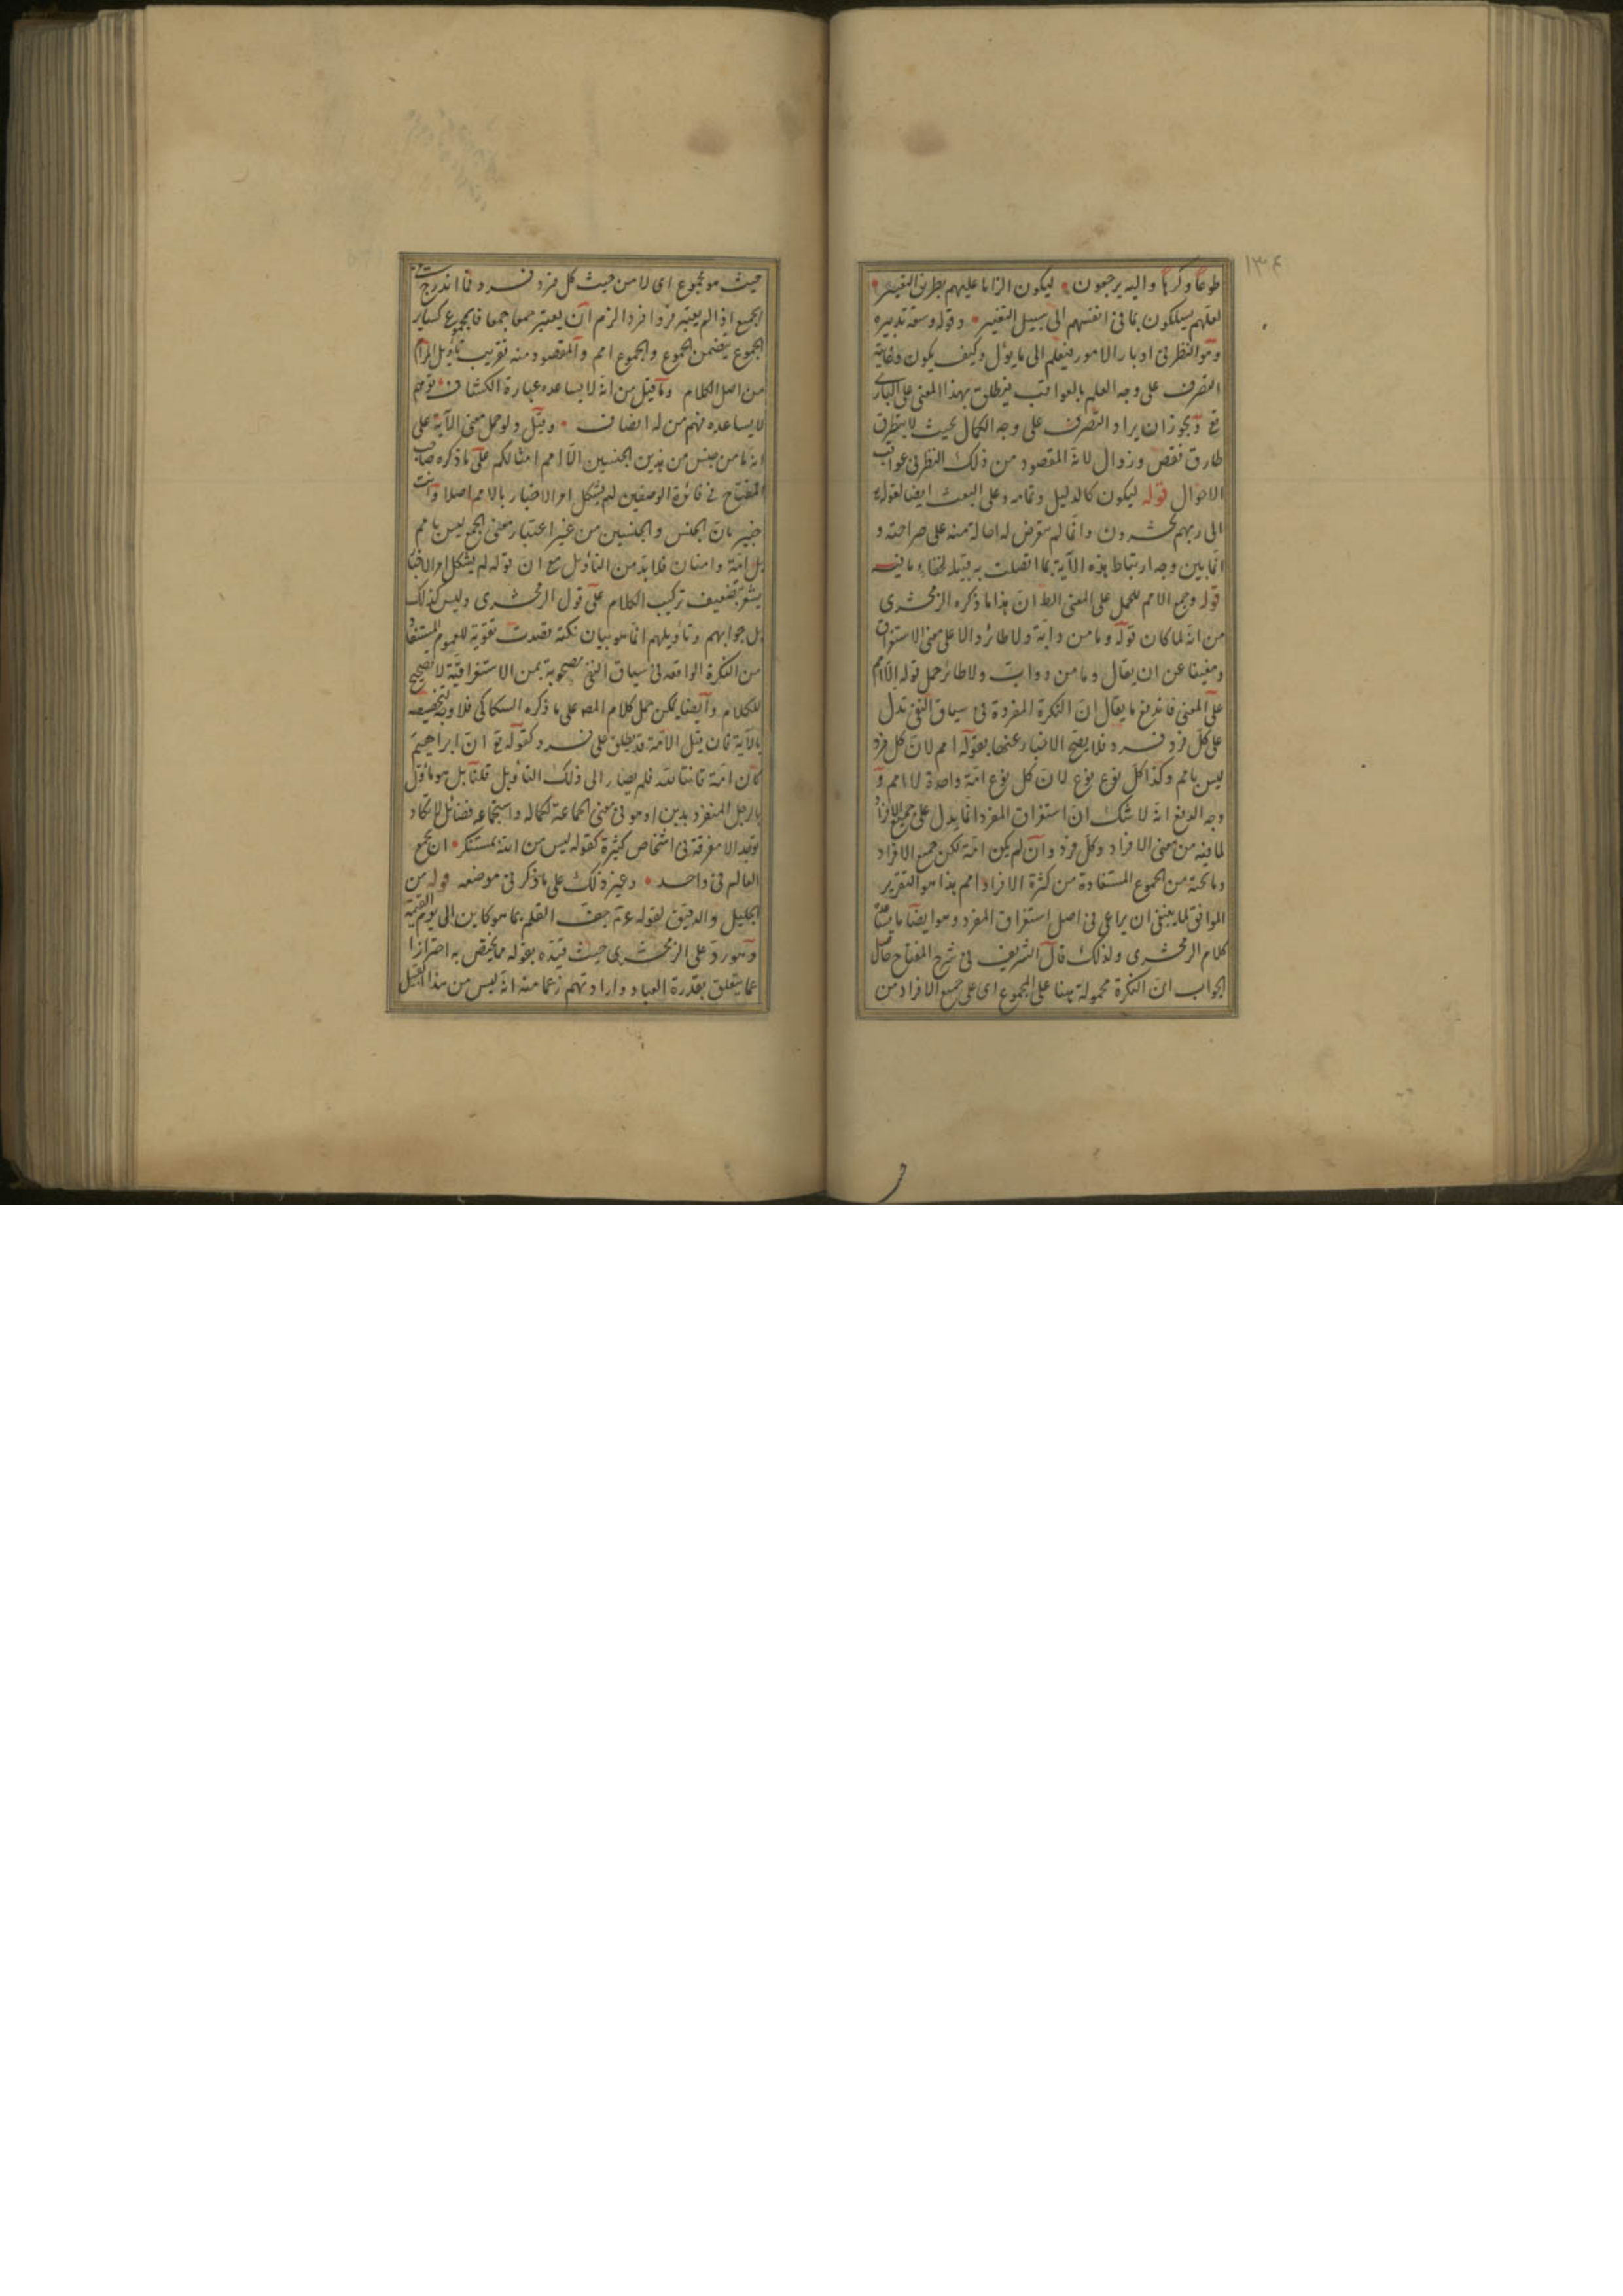 ١٣٤
طوعا وكرها واليه يرجعون ليكون الزاما عليهم بطريق التفسير
لعلهم يسلكون بما في انفسهم الى سبيل التغيير وقوله وسعة تدبيره
وهو النظر في ادبار الامور فيعلم الى ما يؤل وكيف يكون وغاية
التصرف على وجه العلم بالعواقب فيطلق بهذا المعنى على الباري
تع ويجوز ان يراد التصرف على وجه الكمال بحيث لا يتطرق
طارق نقص وزوال لانه المقصود من ذلك النظر في عواقب
الاحوال قوله ليكون كالدليل وتمامه وعلى البعث ايضا لقوله
الى ربهم يحشرون وانما لم يتعرض له احالة منه على صراحته و
انما بين وجه ارتباط هذه الآية بما اتصلت به قبله لخفاء ما فيه
قوله وجمع الامم للحمل على المعنى الظ ان هذا ما ذكره الزمخشرى
من انه لما كان قوله وما من دابة ولا طائر دالا على معنى الاستغراق
ومغنيا عن ان يقال وما من دواب ولا طائر حمل قوله الا امم
على المعنى فاندفع ما يقال ان النكرة المفردة في سياق النفى تدل
على كل فرد فرد فلا يصح الاخبار عنها بقوله امم لان كل فرد
ليس بامم وكذا كل نوع نوع لان كل نوع امة واحدة لا امم و
وجه الدفع انه لا شك ان استغراق المفرد انما يدل على جميع الافراد
لما فيه من معنى الافراد وكل فرد وان لم يكن امة لكن جميع الافراد
وما تحته من الجموع المستفادة من كثرة الافراد امم هذا هو التقرير
الموافق لما ينبغى ان يراعى في اصل استغراق المفرد وهو ايضا ما
كلام الزمخشرى ولذلك قال الشريف في شرح المفتاح حاصل
الجواب ان النكرة محمولة هنا على المجموع اى على جميع الافراد من
حيث هو مجموع اى لا من حيث كل فرد فرد فما اندرج تحت
الجميع اذا لم يعتبر فردا فردا لزم ان يعتبر جمعا جمعا فالمجموع كساير
الجموع يتضمن الجموع والجموع امم والمقصود منه تقريب تأويل المراد
من اصل الكلام وما قيل من انه لا يساعده عبارة الكشاف توهم
لا يساعده فهم من له انصاف وقيل ولو حمل معنى الآية على
انه ما من جنس من هذين الجنسين الا امم امثالكم على ما ذكره صاحب
المفتاح في فائدة الوصفين لم يشكل امر الاخبار بالامم اصلا وانت
خبير بان الجنس والجنسين من غير اعتبار معنى الجمع ليس بامم
بل امة وامتان فلا بد من التأويل مع ان قوله لم يشكل امر الاخبار
يشعر بتضعيف تركيب الكلام على قول الزمخشرى وليس كذلك
بل جوابهم وتأويلهم انما هو بيان نكتة قصدت تقوية للعموم المستفاد
من النكرة الواقعه في سياق النفى مصحوبة بمن الاستغراقية لا تصحيح
للكلام وايضا يمكن حمل كلام المص على ما ذكره السكاكى فلا وجه لتخصيصه
بالآية فان قيل الامة قد يطلق على فرد كقوله تع ان ابراهيم
كان امة قانتا لله فلم يصار الى ذلك التأويل قلنا بل هو مأول
بالرجل المنفرد بدين او هو في معنى الجماعة لكماله واستجماعه فضائل لا تكاد
توجد الا متفرقة في اشخاص كثيرة كقوله ليس من الله بمستنكر ان يجمع
العالم في واحد وغير ذلك على ما ذكر في موضعه قوله من
الجليل والدقيق لقوله عم جف القلم بما هو كاين الى يوم القيمة
وهو رد على الزمخشرى حيث قيده بقوله مما يختص به احترازا
عما يتعلق بقدرة العباد وارادتهم زعما منه انه ليس من هذا القبيل